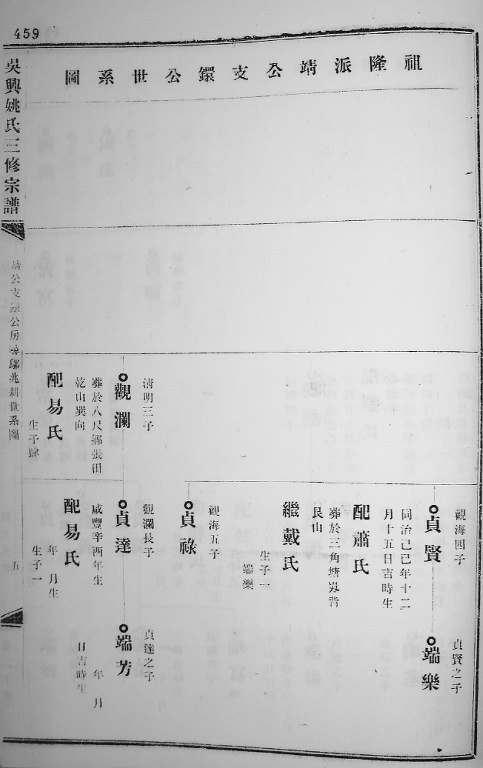 459
祖隆派靖公支鐶公世系圖
吳興姚氏三修宗譜
觀海四子
貞賢
同治己巳年十二
月十五日吉時生
配蕭氏
葬於三角塘㟴背
艮山
繼戴氏
生子一
端樂
貞賢之子
端樂
觀海五子
貞祿
清明三子
觀瀾
葬於八尺鄉張田
乾山巽向
配易氏
生子肆
觀瀾長子
貞達
咸豐辛酉年生
配易氏
年 月生
生子一
貞達之子
端芳
年 月
日吉時生
五